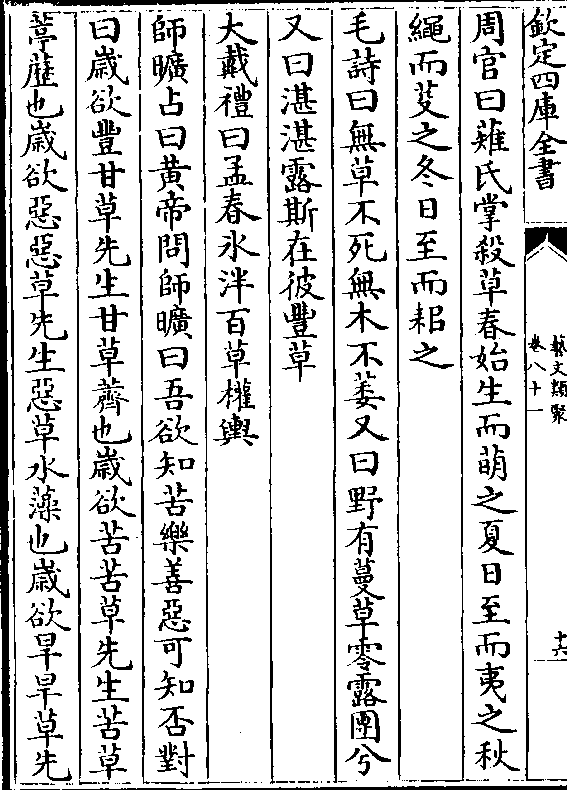 欽定四庫全書
藝文類聚
卷八十一
十六
周官曰薙氏掌殺草春始生而萌之夏日至而夷之秋
繩而芟之冬日至而耜之
毛詩曰無草不死無木不萎又曰野有蔓草零露團兮
又曰湛湛露斯在彼豐草
大戴禮曰孟春氷泮百草權輿
師曠占曰黃帝問師曠曰吾欲知苦樂善惡可知否對
曰嵗欲豐甘草先生甘草薺也嵗欲苦苦草先生苦草
葶藶也嵗欲惡惡草先生惡草水藻也嵗欲旱旱草先